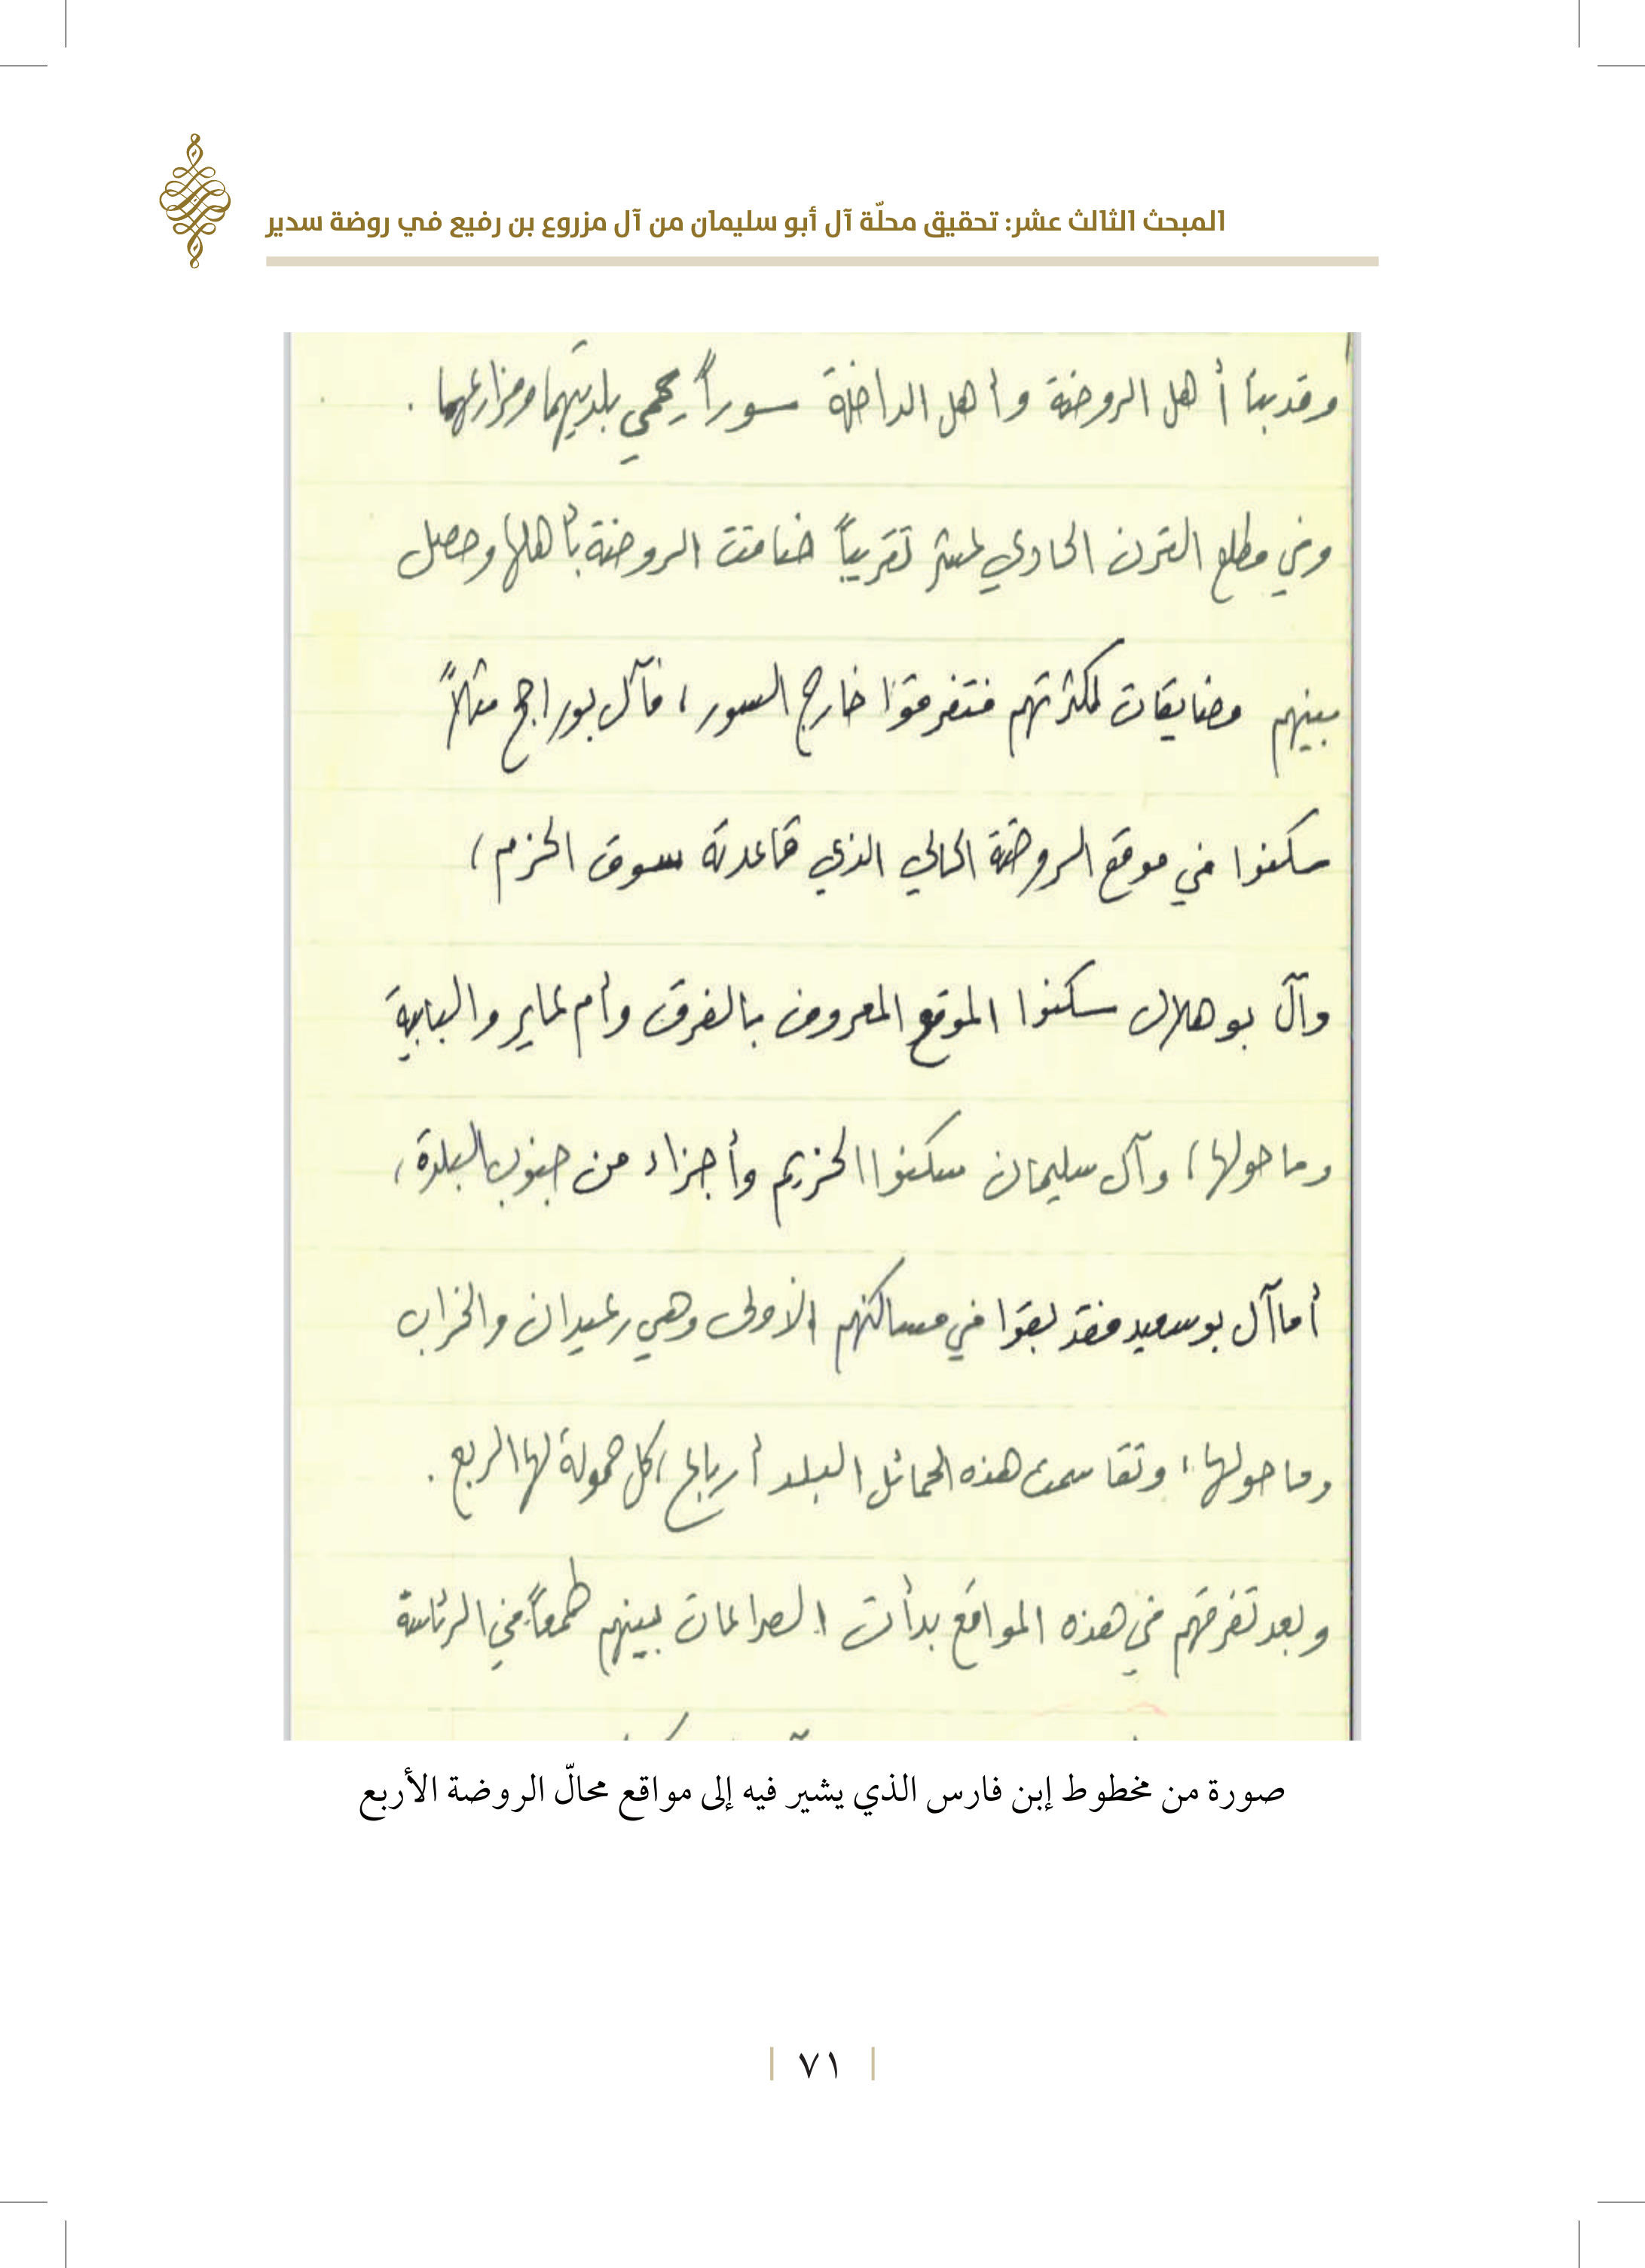 المبحث الثالث عشر: تحقيق محلّة آل أبو سليمان من آل مزروع بن رفيع في روضة سدير
وقد بنا أهل الروضة وأهل الداخلة سوراً يحمي بلديهما ومزارعهما .
وفي مطلع القرن الحادي عشر تقريباً ضاقت الروضة بأهلها وحصل
بينهم مضايقات لكثرتهم فتفرقوا خارج السور ، فآل بوراجح مثلاً
سكنوا في موقع الروضة الحالي الذي قاعدته سوق الحزم ،
وآل بو هلال سكنوا الموقع المعروف بالفرق وأم عماير والبابية
وما حولها ، وآل سليمان سكنوا الحزيم وأجزاء من جنوب البلدة ،
أما آل بوسعيد فقد بقوا في مساكنهم الأولى وهي رغيدان والخراب
وما حولها ، وتقاسمت هذه الحمائل البلد أرباع ، كل حمولة لها الربع .
وبعد تفرقهم في هذه المواقع بدأت الصراعات بينهم طمعاً في الرئاسة
صورة من مخطوط إبن فارس الذي يشير فيه إلى مواقع محالّ الروضة الأربع
٧١